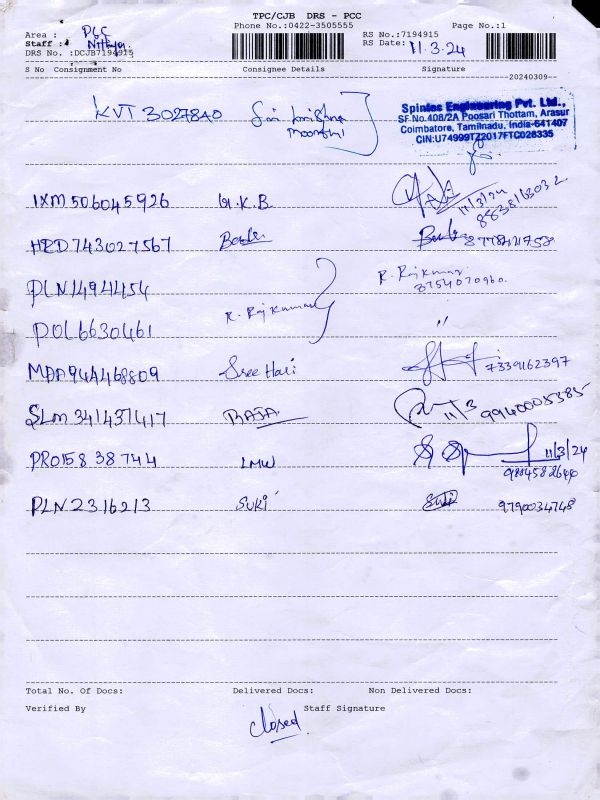 TPC/CJB DRS - PCC
Area : PCC Phone No.:0422-3505555 RS No.:7194915 Page No.:1
Staff : Nithya RS Date: 11.3.24
DRS No. :DCJB7194915
S No Consignment No Consignee Details Signature
20240309
KVT 3027840 Sri Krishna Moorthi
Spintec Engineering Pvt. Ltd.,
SF No.408/2A Poosari Thottam, Arasur
Coimbatore, Tamilnadu, India-641407
CIN:U74999TZ2017FTC028335
IXM 506045926 U.K.B 11/3/24 8838168032
HRD 743027567 8778421753
PLN1494454 R. Rajkumar R. Rajkumar 8754070960.
POL6630461 "
MAA944468809 Sree Hari 7339162397
SLM 341437417 RAJA 11/3 9940005385
PRO15838744 LMW 11/3/24 9884582640
PLN2316213 SUKI Suki 9790034748
Total No. Of Docs: Delivered Docs: Non Delivered Docs:
Verified By Staff Signature
closed